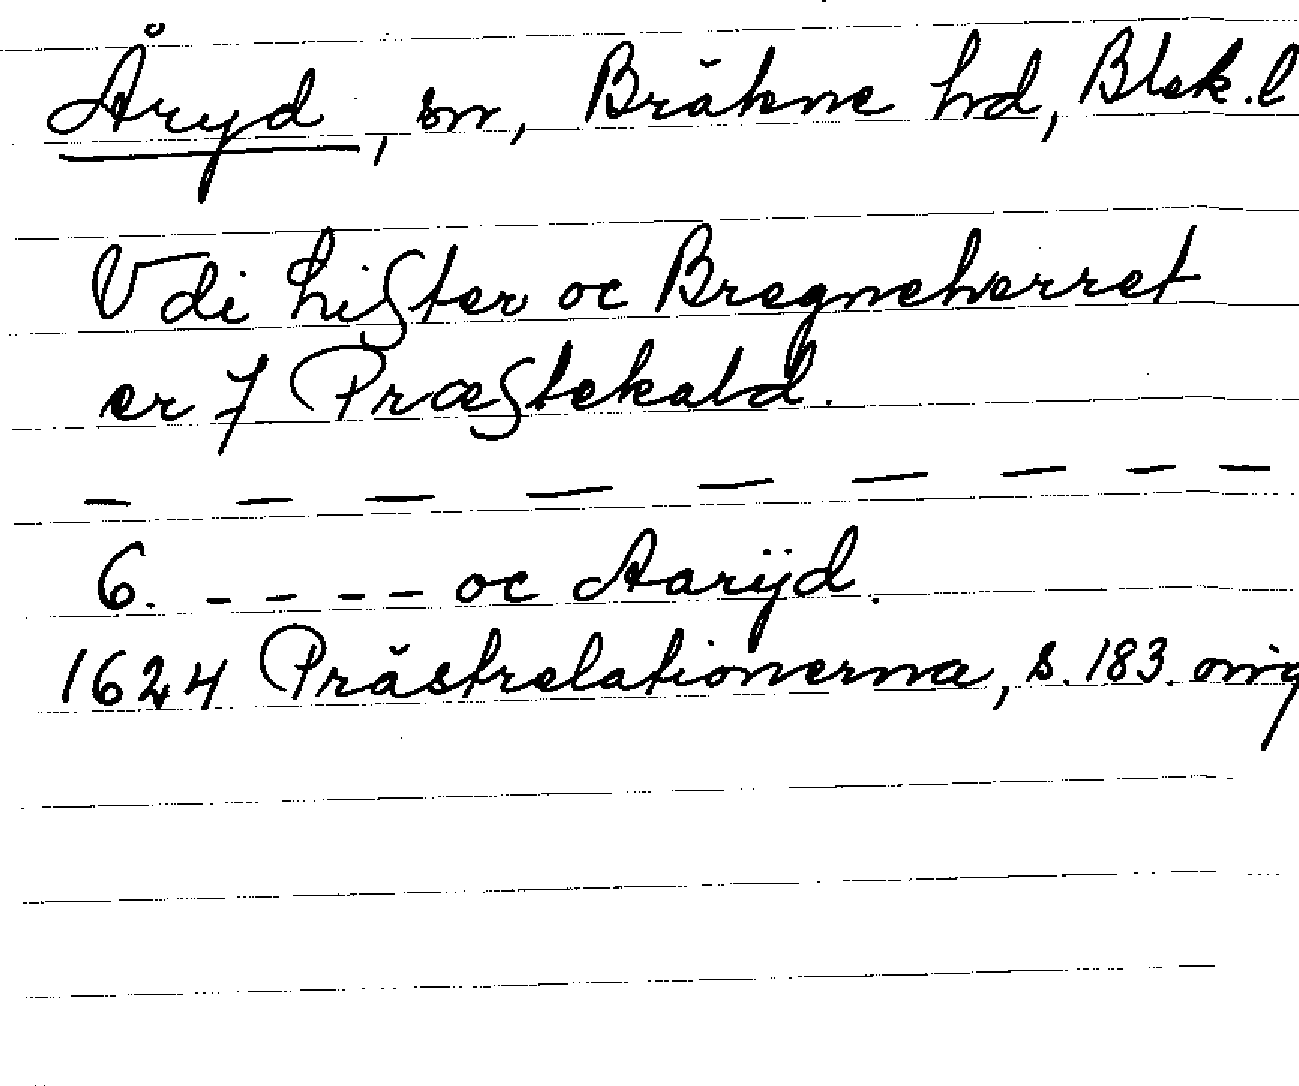 Åryd, sn, Bräkne hd, Blek. l
Vdi Liſter oc Bregneherret
er 7 Præſtekald.
— — — — — — — —
6. - - - - oc Aarÿd.
1624 Prästrelationerna, s. 183. orig